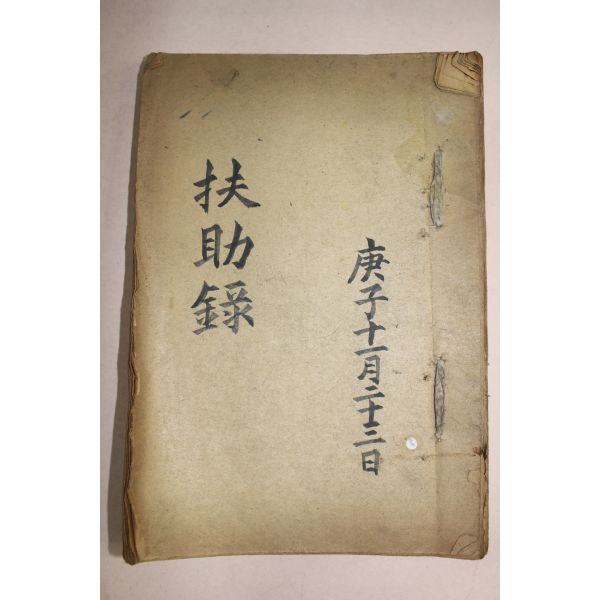 庚子十一月二十三日
扶助錄